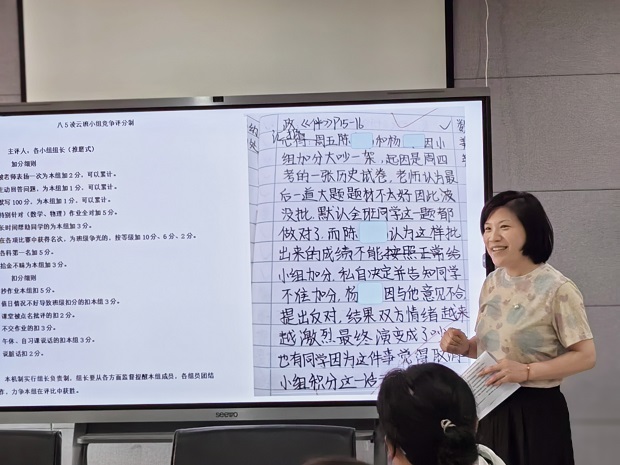 八5凌云班小组竞争评分制
主评人、各小组组长(推磨式)
加分细则
被老师表扬一次为本组加2分,可以累计。
主动回答问题,为本组加1分,可以累计。
默写100分,为本组加1分,可以累计。
特别针对(数学、物理)作业全对加5分。
长时间帮助同学的为本组加3分。
在各项比赛中获得名次,为班级争光的,按等级加10分、6分、2分。
各科第一名加5分。
拾金不昧为本组加3分。
扣分细则
抄作业本组扣5分。
值日情况不好导致班级扣分的扣本组3分。
课堂被点名批评的扣2分。
不交作业的扣3分。
午休、自习课说话的扣本组3分。
说脏话扣2分。
本机制实行组长负责制,组长要从各方面监督提醒本组成员,各组员团结
作、力争本组在评比中获胜。
政《伴》P15-16
周五陈 和杨 ,因小
组加分大吵一架,起因是周四
考的一张历史试卷,老师认为最
后一道大题题材不太好因此没
没批,默认全班同学这一题都
做对了,而陈 认为这样批
出来的成绩不能按照正常给
小组加分,私自决定并告知同学
不准加分,杨 因与他意见不合
提出反对,结果双方情绪越来
越激烈最终演变成了
也有同学因为这件事觉得取消
小组积分这一
seewo